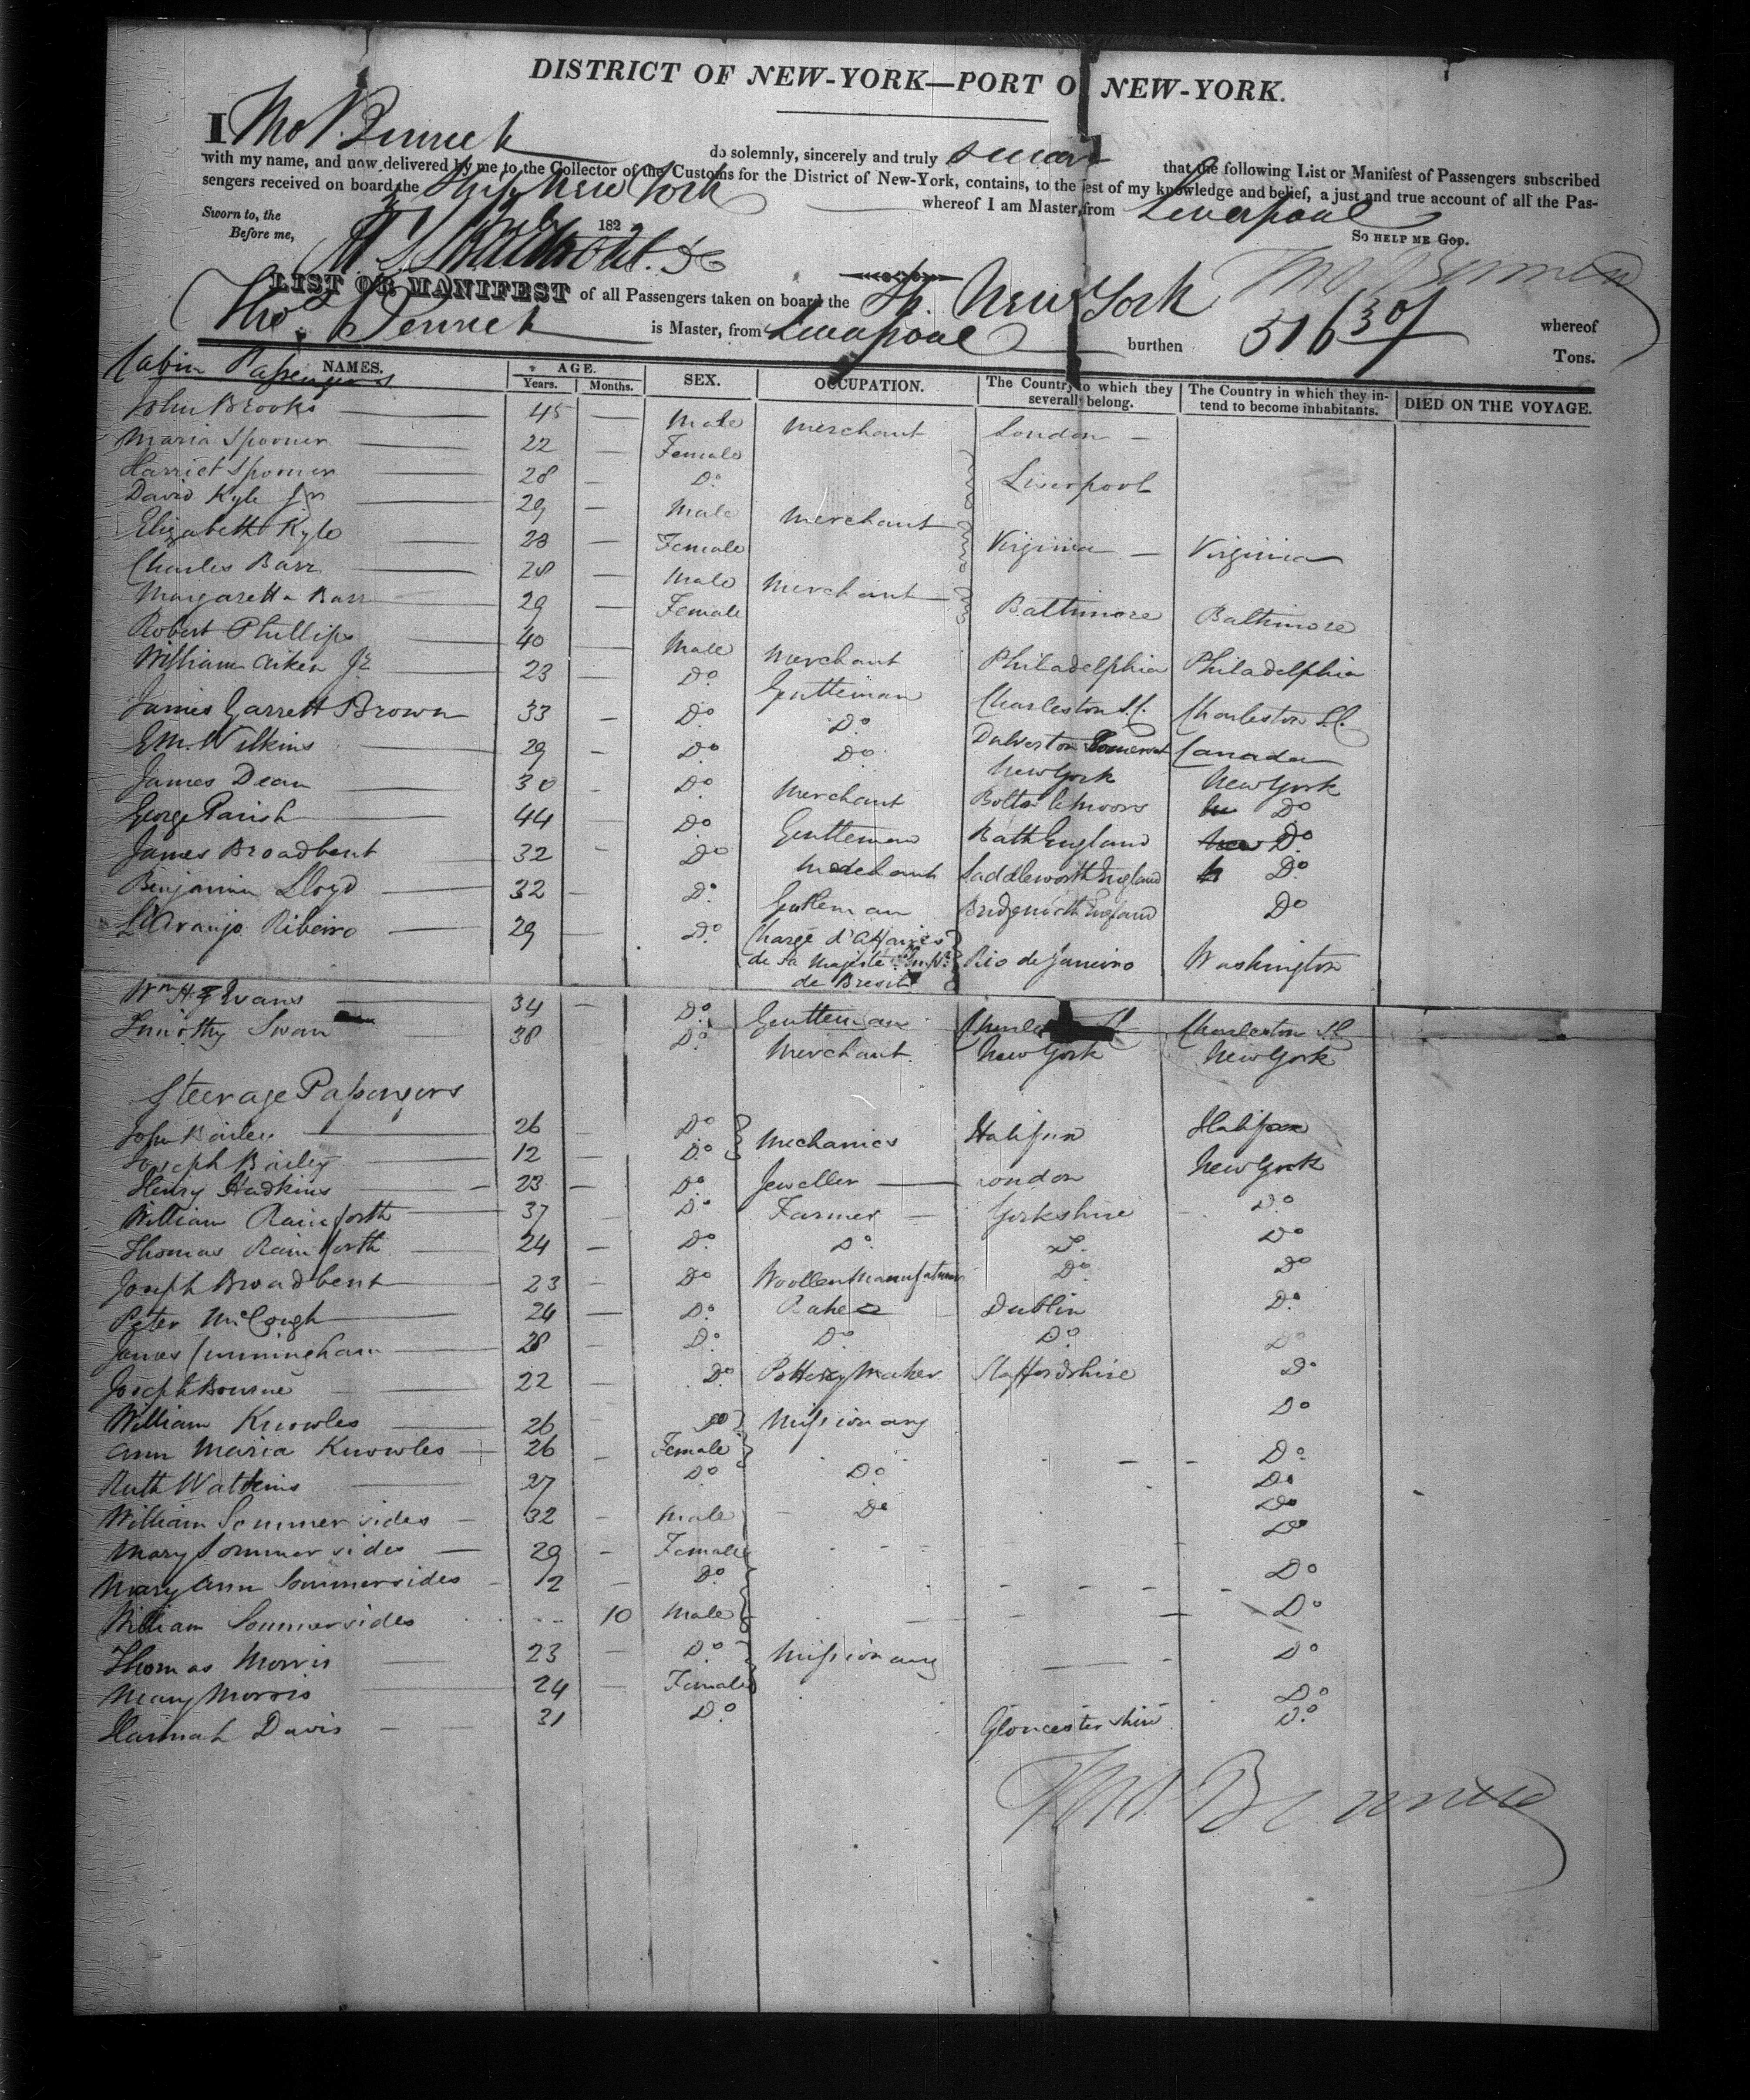 DISTRICT OF NEW-YORK—PORT OF NEW-YORK.
I Tho s Bennett do solemnly, sincerely and truly swear that the following List or Manifest of Passengers subscribed
with my name, and now delivered by me to the Collector of the Customs for the District of New-York, contains, to the best of my knowledge and belief, a just and true account of all the Pas-
sengers received on board the Ship New York whereof I am Master, from Liverpool
Sworn to, the 182 So HELP ME GOD.
Before me,
LIST OR MANIFEST of all Passengers taken on board the Sh. New York whereof
Tho s Bennett is Master, from Liverpool burthen 516 Tons.
Cabin Passengers
NAMES. AGE. Years. Months. SEX. OCCUPATION. The Country to which they severally belong. The Country in which they intend to become inhabitants. DIED ON THE VOYAGE.
John Brooks 45 Male Merchant London
Maria Spooner 22 Female
Harriet Spooner 28 Do Liverpool
David Kyle Jr 29 Male Merchant
Elizabeth Kyle 28 Female Virginia Virginia
Charles Barr 28 Male Merchant
Margaretta Barr 29 Female Baltimore Baltimore
Robert Phillips 40 Male Merchant Philadelphia Philadelphia
William Aiken Jr 23 Do Gentleman Charleston S.C. Charleston S.C.
James Garrett Brown 33 Do Do Dulverton Somerset Canada
E.M. Wilkins 29 Do Do New York New York
James Dean 30 Do Merchant Bolton le Moors Do
George Parish 44 Do Gentleman Bath England Do
James Broadbent 32 Do Merchant Saddleworth England Do
Benjamin Lloyd 32 Do Gentleman Bridgnorth England Do
d'Araujo Ribeiro 29 Do Chargé d'Affaires
de Sa Majesté Rio de Janeiro Washington
de Bresil
Wm H Evans 34 Do Gentleman Charleston S.C.
Timothy Swan 38 Do Merchant New York New York
Steerage Passengers
John Bailey 26 Do Mechanics Halifax Halifax
Joseph Bailey 12 Do New York
Henry Hadkins 23 Do Jeweller London
William Rainforth 37 Do Farmer Yorkshire Do
Thomas Rainforth 24 Do Do Do Do
Joseph Broadbent 23 Do Woollen Manufacturer Do Do
Peter McGough 24 Do Baker Dublin Do
James Cunningham 28 Do Do Do Do
Joseph Bourne 22 Do Pottery Maker Staffordshire Do
William Knowles 26 Do Missionary Do
Ann Maria Knowles 26 Female Do
Ruth Watkins 27 Do Do Do
William Sommersides 32 Male Do Do
Mary Sommersides 29 Female Do
Mary Ann Sommersides 2 Do Do
William Sommersides 10 Male Do
Thomas Morris 23 Do Missionary Do
Mary Morris 24 Female Do
Hannah Davis 31 Do Gloucestershire Do